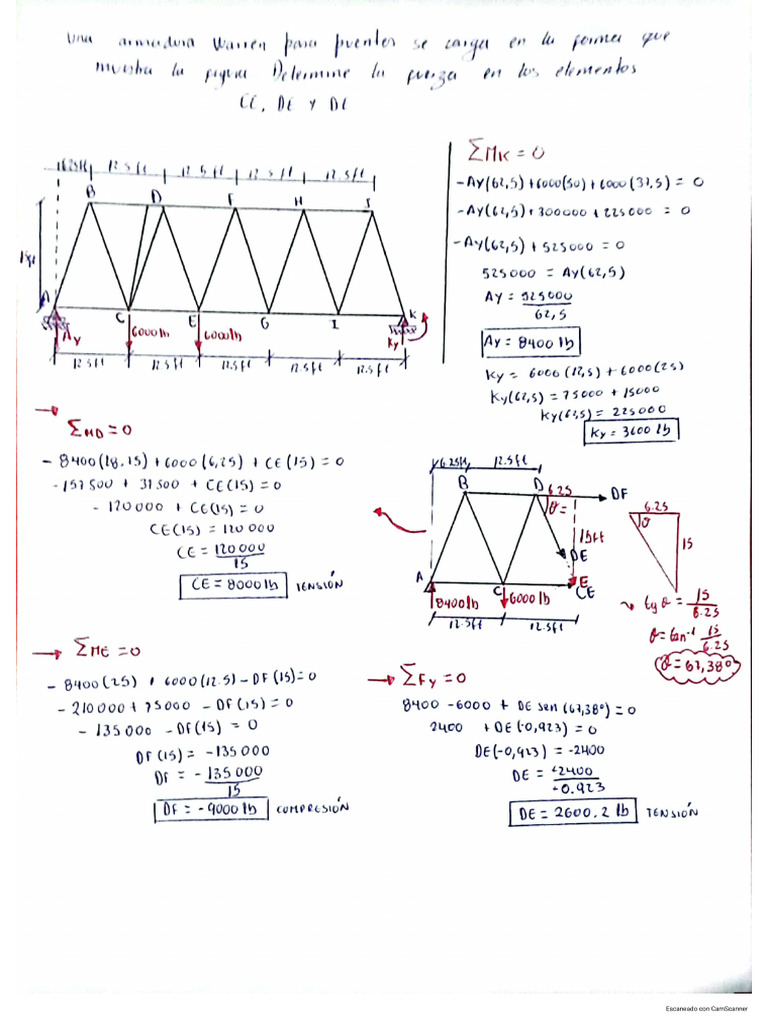 Una armadura Warren para puentes se carga en la forma que
muestra la figura Determine la fuerza en los elementos
CE, DE y DF
6.25ft 12.5ft 12.5ft 12.5ft 12.5ft
B D F H J
15ft
A C E G I K
Ay 6000lb 6000lb Ky
12.5ft 12.5ft 12.5ft 12.5ft 12.5ft
ΣMK = 0
- Ay(62,5) + 6000(50) + 6000(37,5) = 0
- Ay(62,5) + 300000 + 225000 = 0
- Ay(62,5) + 525000 = 0
525000 = Ay(62,5)
Ay = 525000
62,5
Ay = 8400 lb
Ky = 6000(12,5) + 6000(25)
Ky(62,5) = 75000 + 15000
Ky(62,5) = 225000
Ky = 3600 lb
→ ΣMD = 0
- 8400(18.75) + 6000(6,25) + CE(15) = 0
- 157500 + 37500 + CE(15) = 0
- 120000 + CE(15) = 0
CE(15) = 120000
CE = 120000
15
CE = 8000 lb TENSIÓN
6.25ft 12.5ft
B D 6.25 DF
θ =
15ft
DE
A C E
CE
8400lb 6000lb
12.5ft 12.5ft
6.25
θ
15
tg θ = 15
6.25
θ = tan⁻¹ 15
6.25
θ = 67,38°
→ ΣME = 0
- 8400(25) + 6000(12.5) - DF(15) = 0
- 210000 + 75000 - DF(15) = 0
- 135000 - DF(15) = 0
DF(15) = -135000
DF = - 135000
15
DF = - 9000 lb COMPRESIÓN
→ ΣFy = 0
8400 - 6000 + DE sen(67,38°) = 0
2400 + DE(-0,923) = 0
DE(-0,923) = -2400
DE = -2400
-0.923
DE = 2600.2 lb TENSIÓN
Escaneado con CamScanner